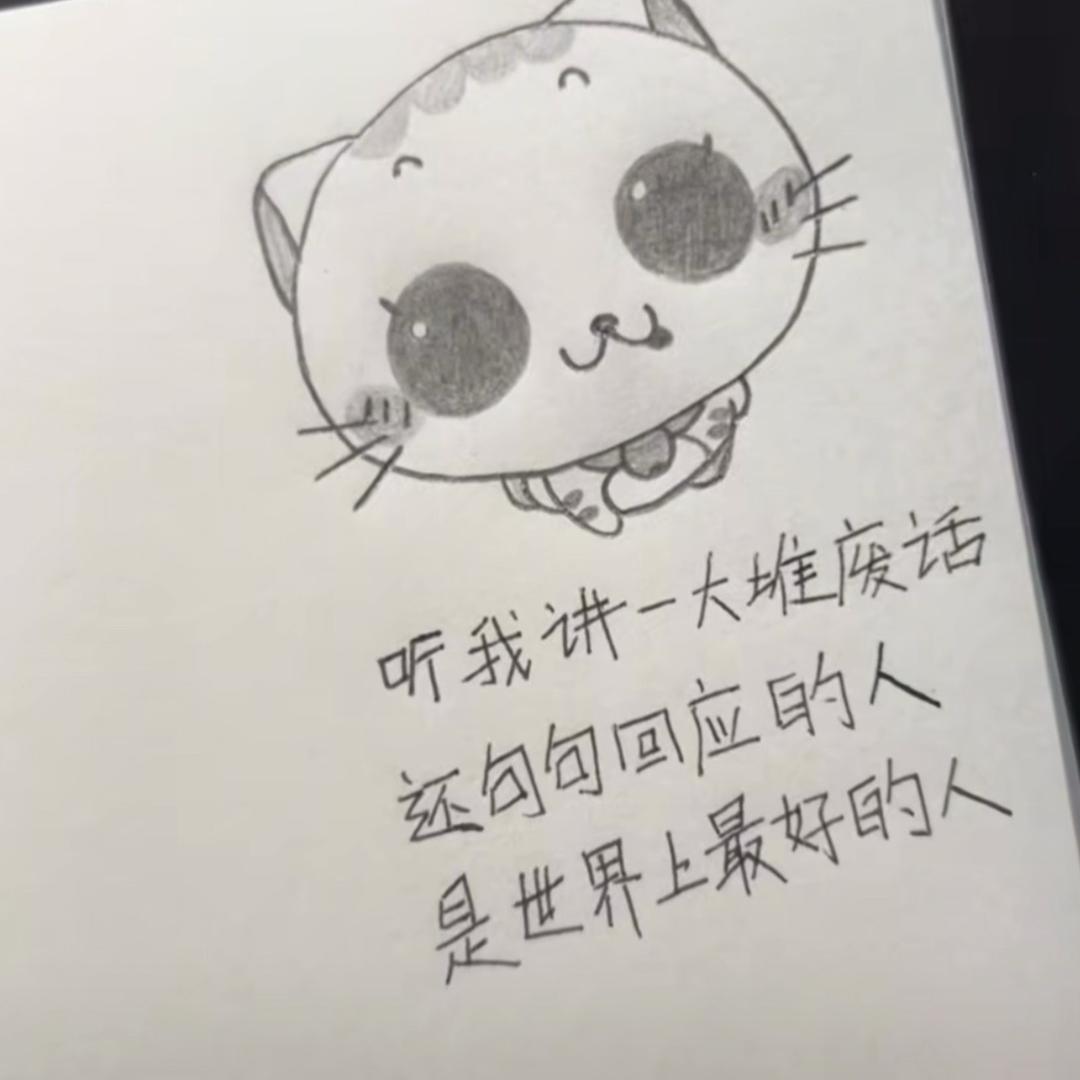 听我讲一大堆废话
还句句回应的人
是世界上最好的人